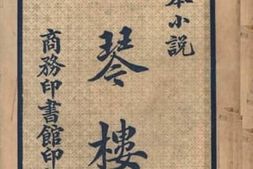 本小説
琴樓
商務印書館印